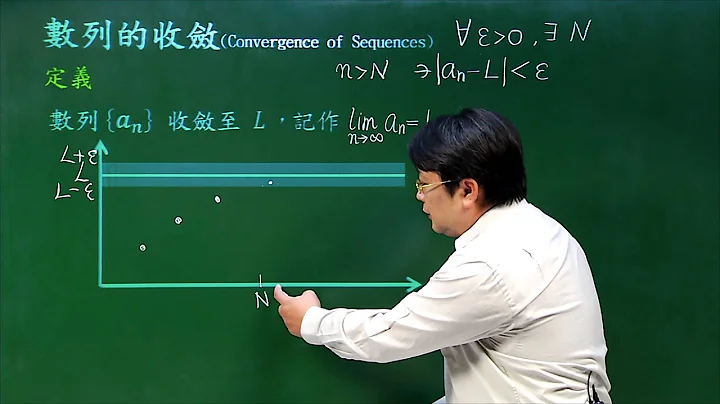 數列的收斂(Convergence of Sequences) ∀ε>0,∃ N
n>N ⇒|aₙ-L|<ε
定義
數列{aₙ} 收斂至 L,記作 lim aₙ=
n→∞
L+ε
L
L-ε
N